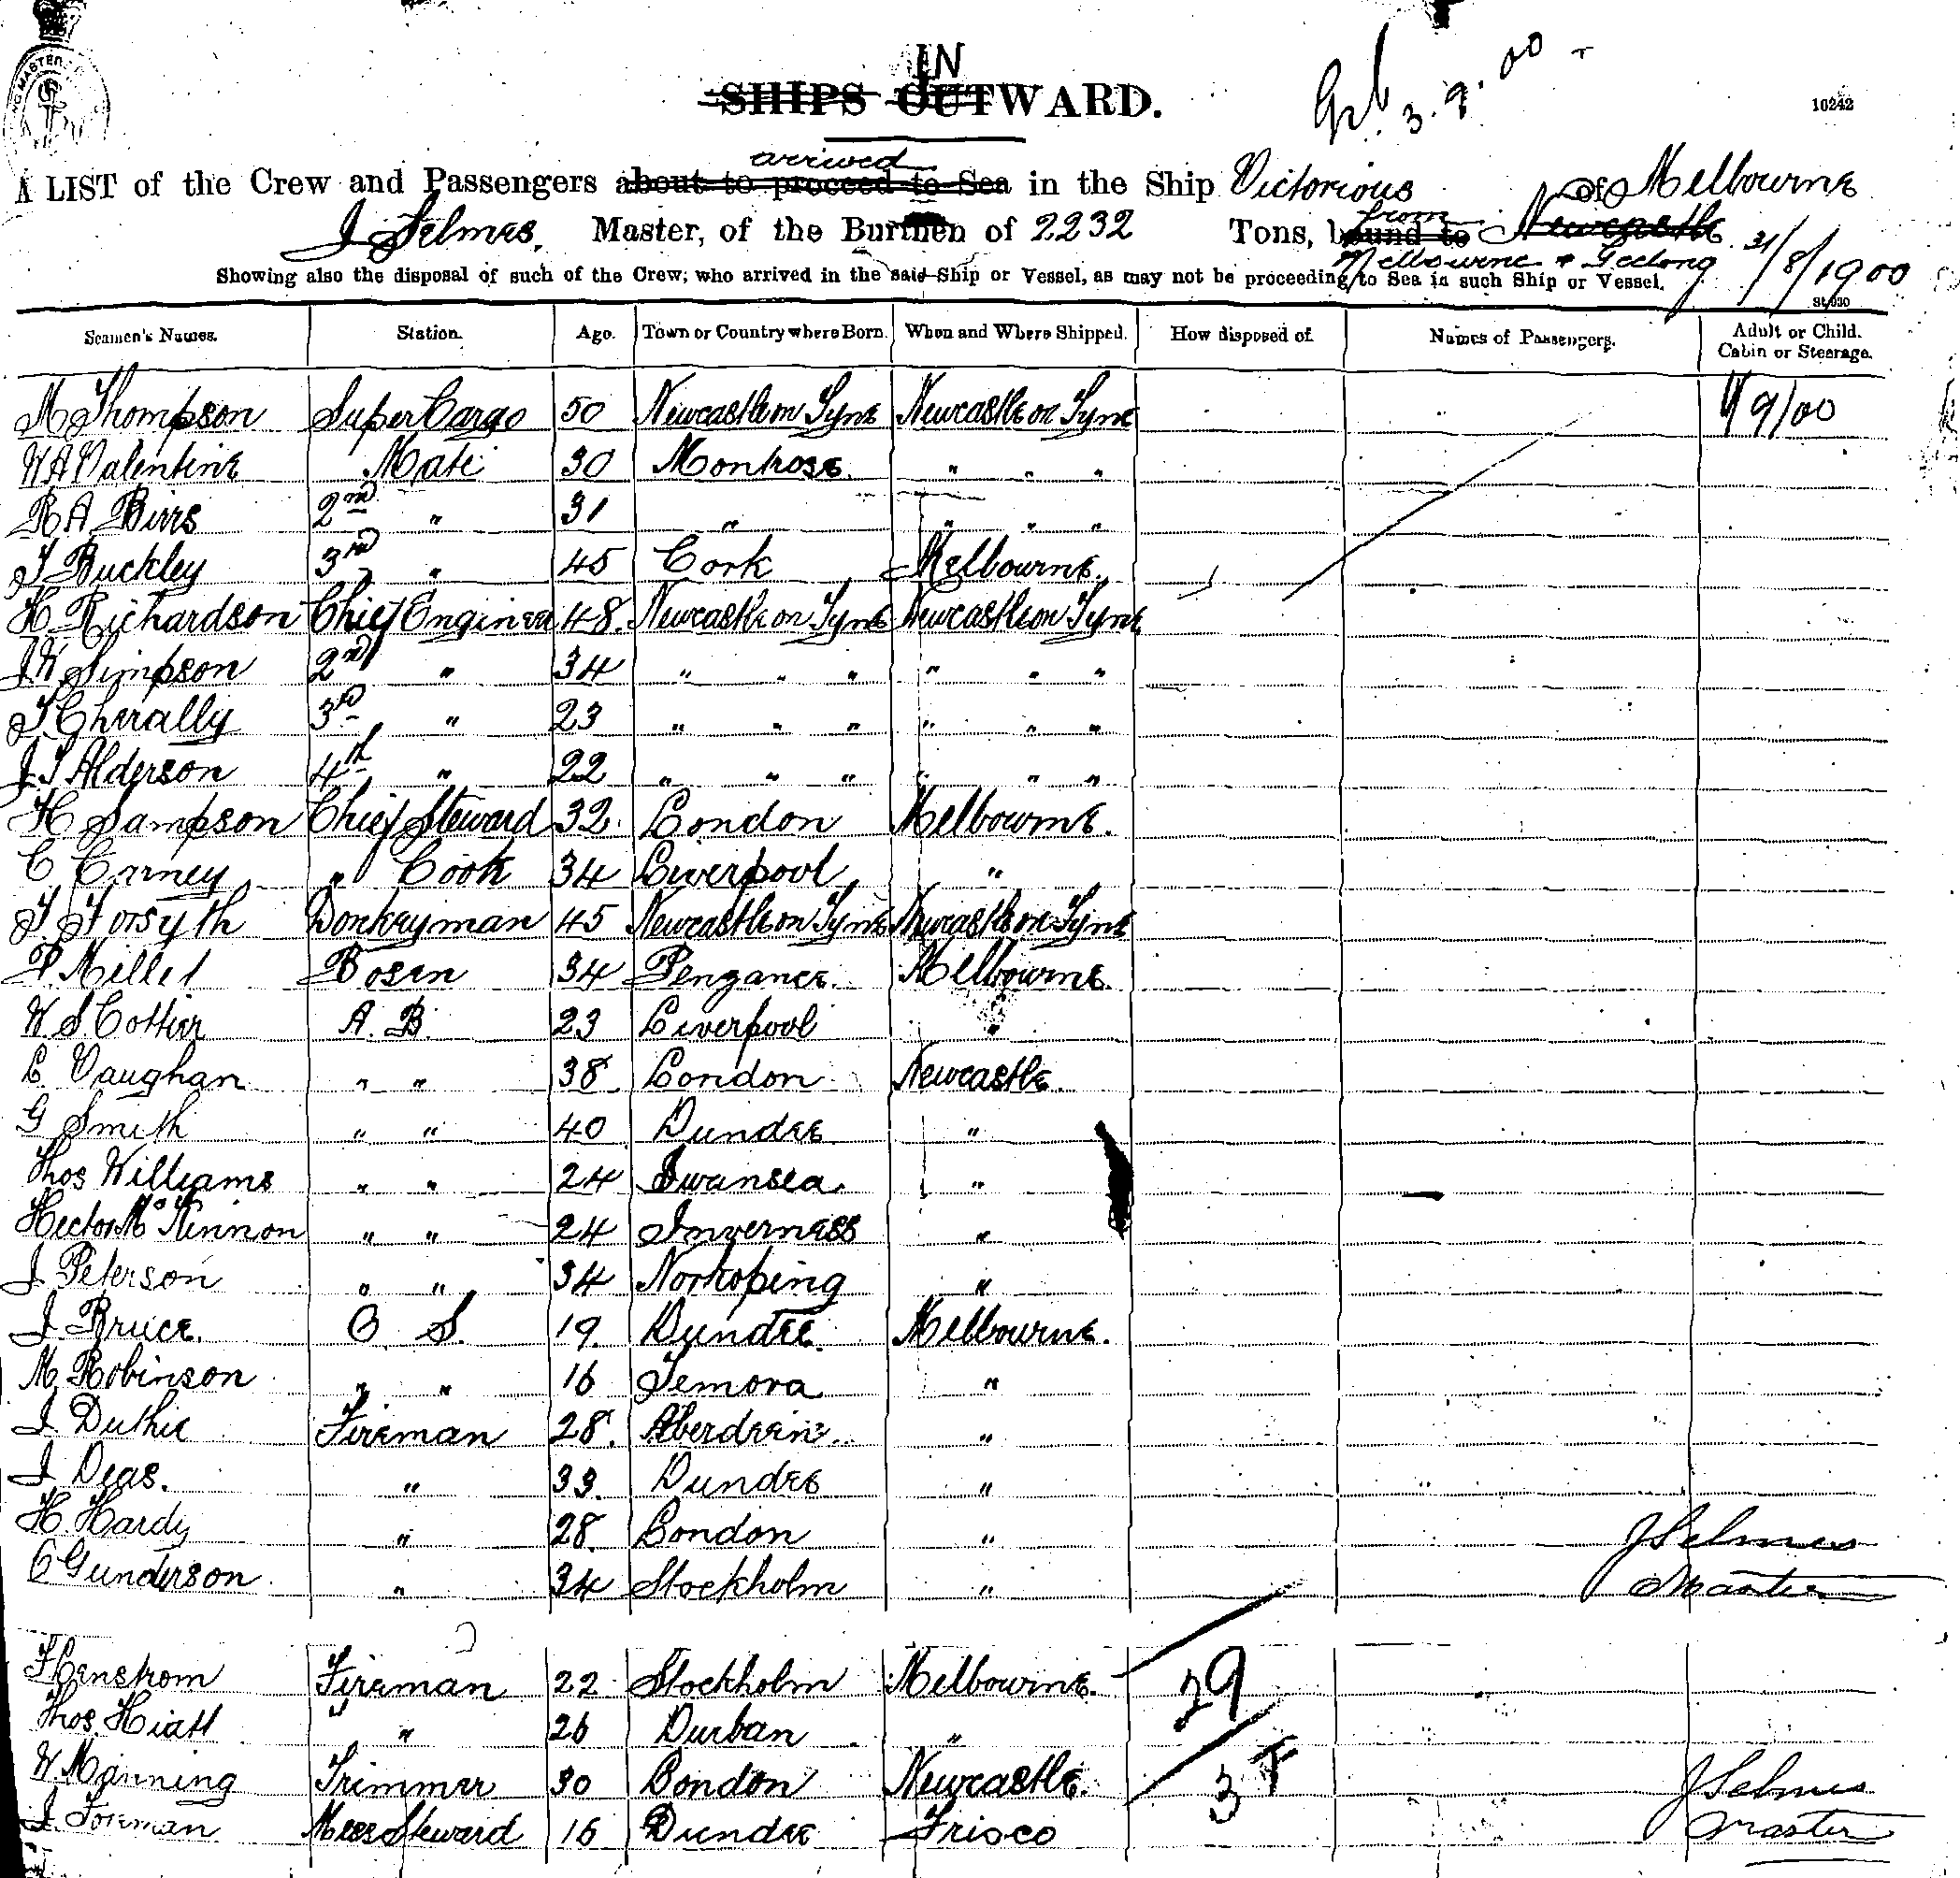 IN
SHIPS OUTWARD.
3.9.00
10242
arrived
A LIST of the Crew and Passengers about to proceed to Sea in the Ship Victorious of Melbourne
J Selmes, Master, of the Burthen of 2232 Tons, bound to from Newcastle
Melbourne & Geelong 31/8/1900
Showing also the disposal of such of the Crew, who arrived in the said Ship or Vessel, as may not be proceeding to Sea in such Ship or Vessel.
Seamen's Names. Station. Age. Town or Country where Born. When and Where Shipped. How disposed of. Names of Passengers. Adult or Child. Cabin or Steerage.
M Thompson Super Cargo 50 Newcastle on Tyne Newcastle on Tyne 1/9/00
W A Valentine Mate 30 Montrose " " "
R A Birrs 2nd " 31 " " " "
T Buckley 3rd " 45 Cork Melbourne
H Richardson Chief Engineer 48. Newcastle on Tyne Newcastle on Tyne
J W Simpson 2nd " 34 " " " " " "
T Cherally 3rd " 23 " " " " " "
J T Alderson 4th " 22 " " " " " "
H Sampson Chief Steward 32. London Melbourne.
C Carney " Cook 34 Liverpool "
T Forsyth Donkeyman 45 Newcastle on Tyne Newcastle on Tyne
P. Millet Bosen 34 Penzance. Melbourne.
W. S. Cottier A. B. 23 Liverpool "
L Vaughan " " 38 London Newcastle.
G Smith " " 40 Dundee "
Thos Williams " " 24 Swansea "
Hector McKinnon " " 24 Inverness "
J. Peterson " " 34 Norkoping "
J. Bruce. O S. 19. Dundee. Melbourne.
M. Robinson " " 16 Temora "
J. Duthie Fireman 28. Aberdeen "
J. Deas. " 33. Dundee "
H. Hardy " 28. London "
J Selmes
O Gunderson " 34 Stockholm "
Master
F Censtrom Fireman 22 Stockholm Melbourne. 29
Thos. Hiatt " 26 Durban "
W. Manning Trimmer 30 London Newcastle. 3 F
J Selmes
J. Foreman Mess Steward 16 Dundee Frisco
Master